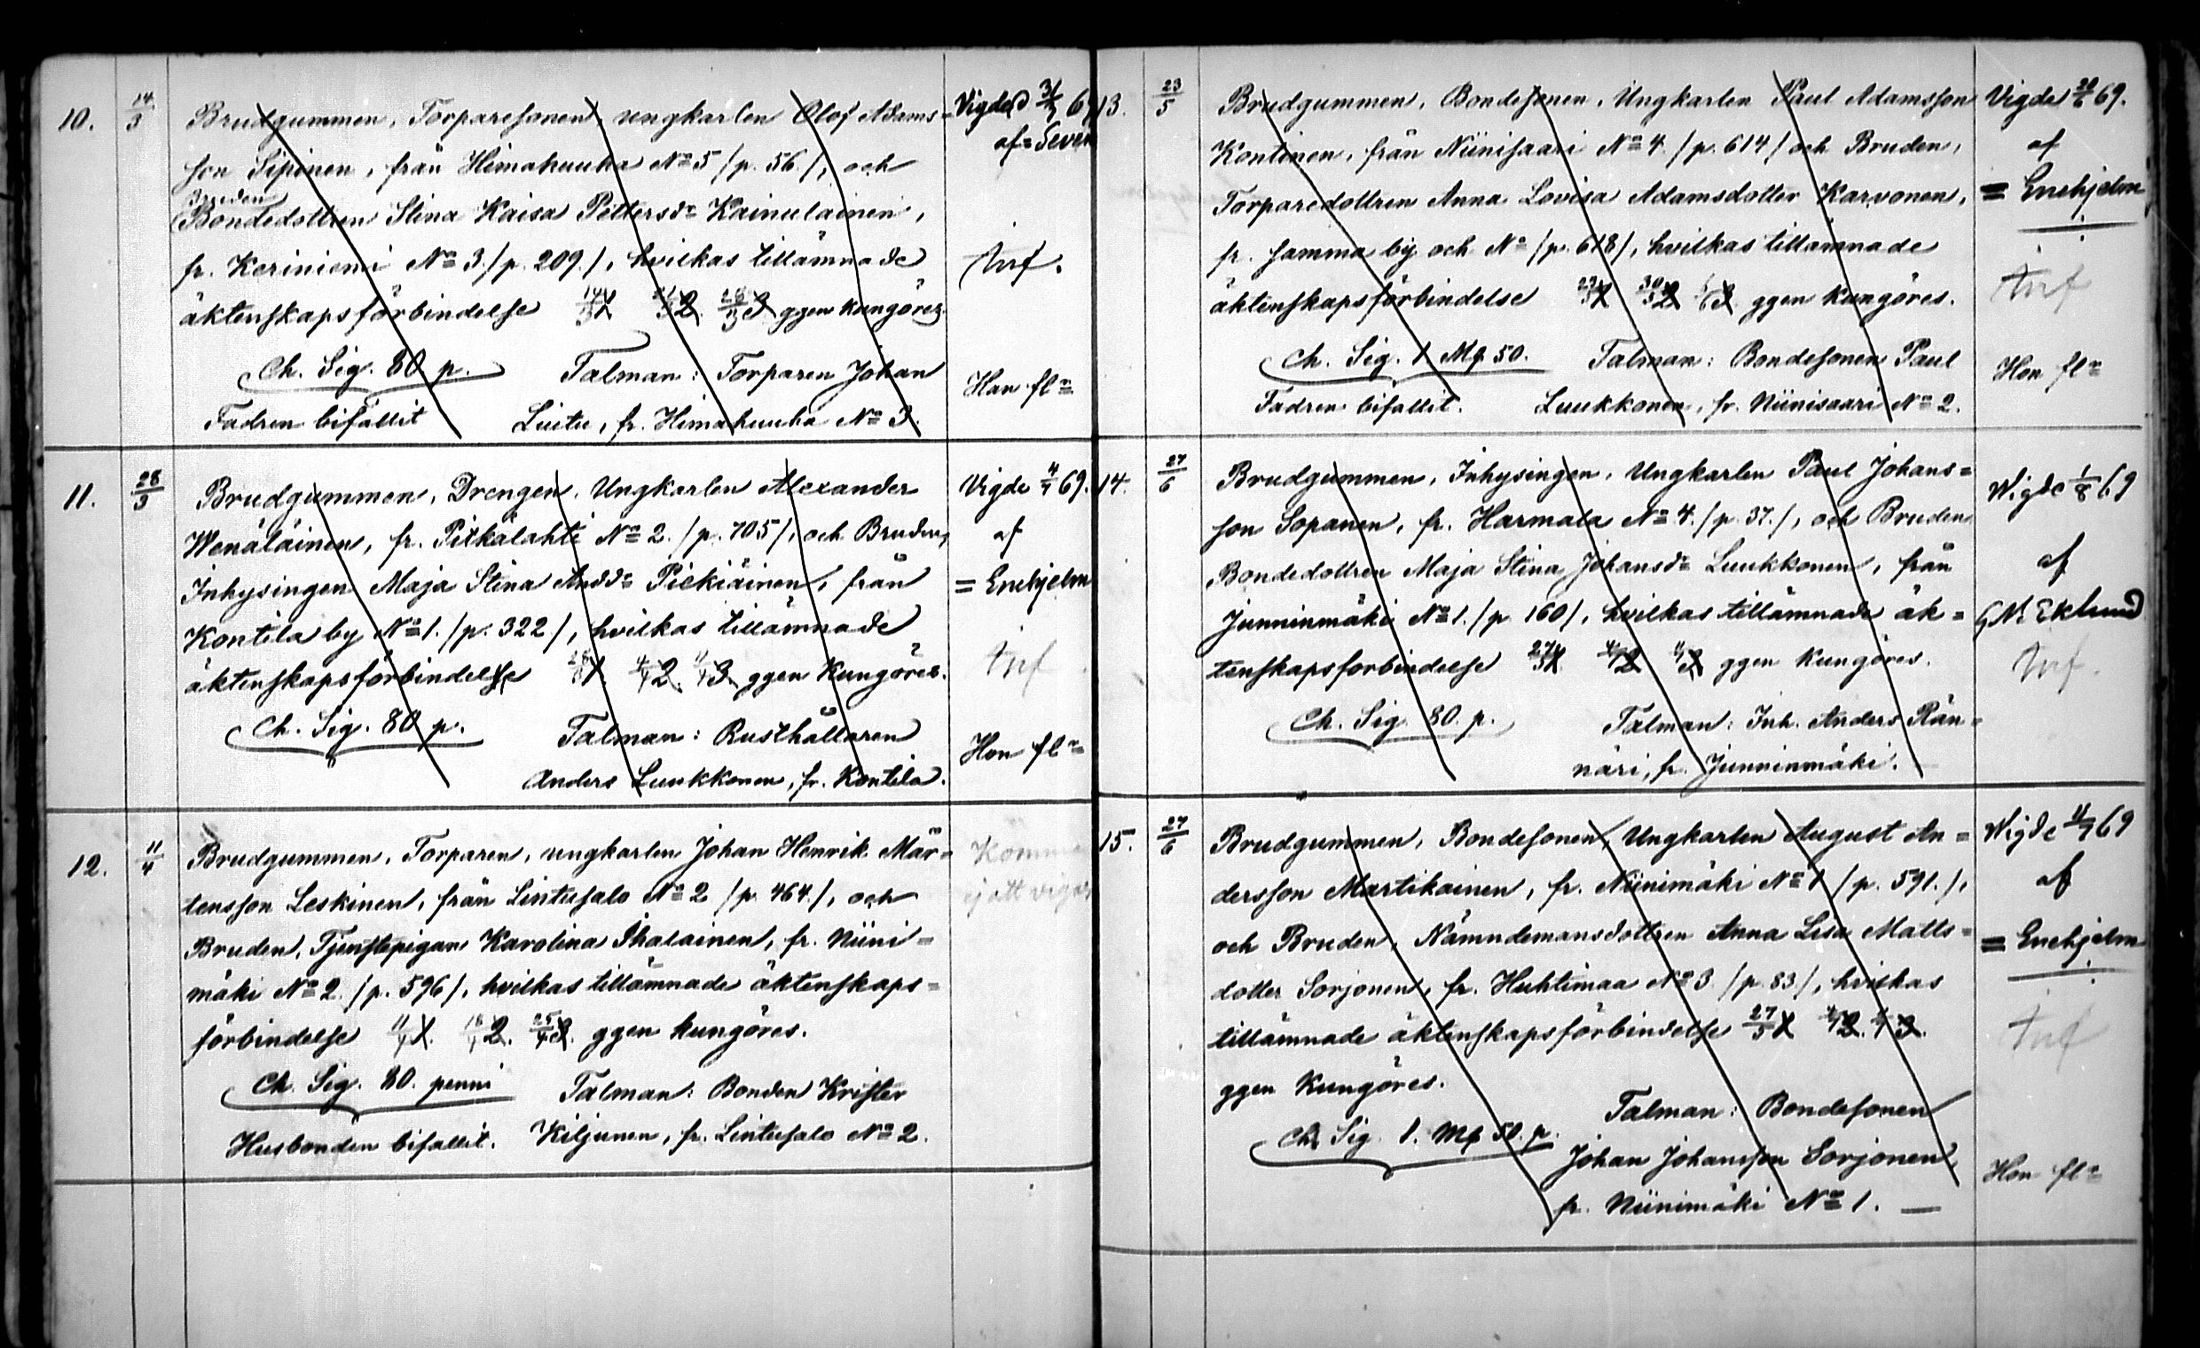 10. 14/3 Brudgummen, Torparesonen, ungkarlen Olof Adams=
son Sipinen, från Himahuuha No 5 /p. 56./, och
Bruden
Bondedottren Stina Kaisa Pettersdr Kainulainen,
fr. Keriniemi No 3 /p. 209./, hvilkas tillämnade
äktenskapsförbindelse 14/3 1 21/3 2. 28/3 3 ggen kungöres.
Ch. Sig. 80 p. Talman: Torparen Johan
Fadren bifallit Luitu, fr. Himahuuha No 3.
Vigde 31/5 69
af = Seven
Inf.
Han fln
11. 28/3 Brudgummen, Drengen, Ungkarlen Alexander
Wenäläinen, fr. Pitkälahti No 2. /p. 705/, och Bruden,
Inhysingen Maja Stina Anddr Piekiäinen, från
Kontila by No 1. /p. 322/, hvilkas tillämnade
äktenskapsförbindelse 28/3 1 4/4 2. 11/4 3 ggen kungöres.
Ch. Sig. 80 p. Talman: Rusthållaren
Anders Luukkonen, fr. Kontila.
Vigde 4/7 69.
af
= Enehjelm
Inf
Hon fln
12. 11/4 Brudgummen, Torparen, ungkarlen Johan Henrik Mår=
tensson Leskinen, från Lintusalo No 2 /p. 464./, och
Bruden, Tjenstepigan Karolina Ihalainen, fr. Niini=
mäki No 2. /p. 596/, hvilkas tillämnade äktenskaps=
förbindelse 11/4 1. 18/4 2. 25/4 3. ggen kungöres.
Ch. Sig. 80. penni Talman: Bonden Krister
Husbonden bifallit. Kiljunen, fr. Lintusalo No 2.
Komma
ej att vigas
13. 23/5 Brudgummen, Bondesonen, Ungkarlen Paul Adamsson
Kontinen, från Niinisaari No 4. /p. 614/ och Bruden,
Torparedottren Anna Lovisa Adamsdotter Karvonen,
fr. samma by och No /p. 618/, hvilkas tillämnade
äktenskapsförbindelse 23/5 1 30/5 2 6/6 3 ggen kungöres.
Ch. Sig. 1 Mk 50. Talman: Bondesonen Paul
Fadren bifallit. Luukkonen, fr. Niinisaari No 2.
Vigde 20/6 69.
af
= Enehjelm
Inf
Hon fln
14. 27/6 Brudgummen, Inhysingen, Ungkarlen Paul Johans=
son Sopanen, fr. Harmala No 4. /p. 37./, och Bruden
Bondedottren Maja Stina Johansdr Luukkonen, från
Junninmäki No 1. /p. 160/, hvilkas tillämnade äk=
tenskapsforbindelse 27/5 1. 4/7 2 11/7 3 ggen kungöres.
Ch. Sig. 80. p. Talman: Inh. Anders Rän=
näri, fr. Junninmäki.
Wigde 1/8 69
af
Eklund
Inf.
15. 27/6 Brudgummen, Bondesonen, Ungkarlen August An=
dersson Martikainen, fr. Niinimäki No 1 /p. 591./,
och Bruden, Nämndemansdottren Anna Lisa Matts=
dotter Sorjonen, fr. Huhtimaa No 3 /p. 83/, hvilkas
tillämnade äktenskapsförbindelse 27/5 1 4/7 2. 11/7 3.
ggen kungöres.
Talman: Bondesonen
Ch Sig. 1. Mk 50. p.
Johan Johansson Sorjonen,
fr. Niinimäki No 1. —
Wigde 11/7 69
af
= Enehjelm
Inf
Hon fln